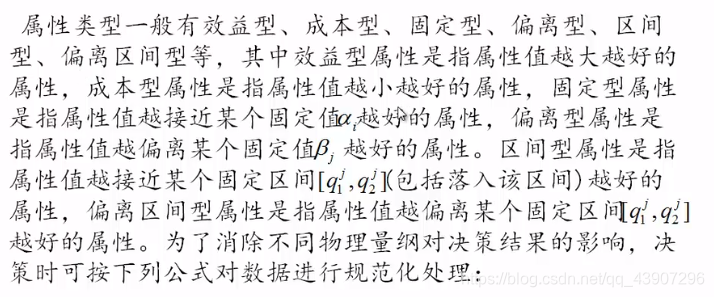 属性类型一般有效益型、成本型、固定型、偏离型、区间
型、偏离区间型等，其中效益型属性是指属性值越大越好的
属性，成本型属性是指属性值越小越好的属性，固定型属性
是指属性值越接近某个固定值α_i越好的属性，偏离型属性是
指属性值越偏离某个固定值β_j越好的属性。区间型属性是指
属性值越接近某个固定区间[q_1^j,q_2^j](包括落入该区间)越好的
属性，偏离区间型属性是指属性值越偏离某个固定区间[q_1^j,q_2^j]
越好的属性。为了消除不同物理量纲对决策结果的影响，决
策时可按下列公式对数据进行规范化处理：
https://blog.csdn.net/qq_43907296